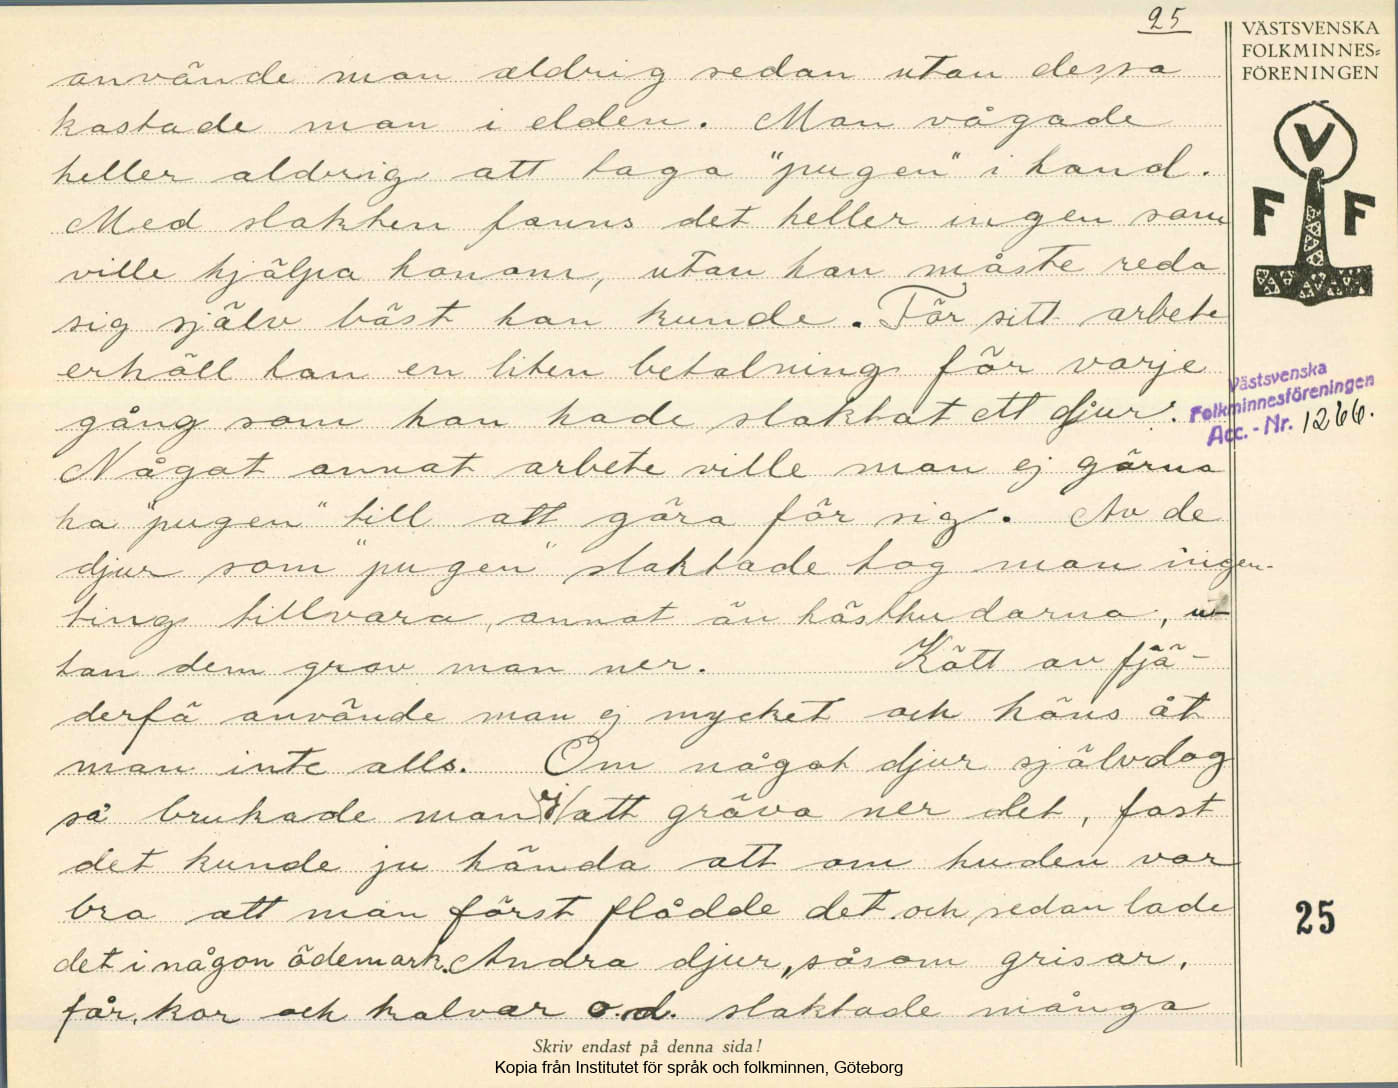 25
VÄSTSVENSKA
FOLKMINNES=
FÖRENINGEN
V
F F
använde man aldrig sedan utan dessa
kastade man i elden. Man vågade
heller aldrig att taga "pugen" i hand.
Med slakten fanns det heller ingen som
ville hjälpa honom, utan han måste reda
sig själv bäst han kunde. För sitt arbete
erhöll han en liten betalning för varje
gång som han hade slaktat ett djur.
Något annat arbete ville man ej gärna
ha "pugen" till att göra för sig. Av de
djur som "pugen" slaktade tog man ingen-
ting tillvara, annat än hästhudarna, ut-
tan dem grov man ner. Kött av fjä-
derfä använde man ej mycket och höns åt
man inte alls. Om något djur självdog
så brukade man ej att gräva ner det, fast
det kunde ju hända att om huden var
bra att man först flådde det och sedan lade
det i någon ödemark. Andra djur, såsom grisar,
får, kor och kalvar o.d. slaktade många
Västsvenska
Folkminnesföreningen
Acc. - Nr. 1266.
25
Skriv endast på denna sida!
Kopia från Institutet för språk och folkminnen, Göteborg